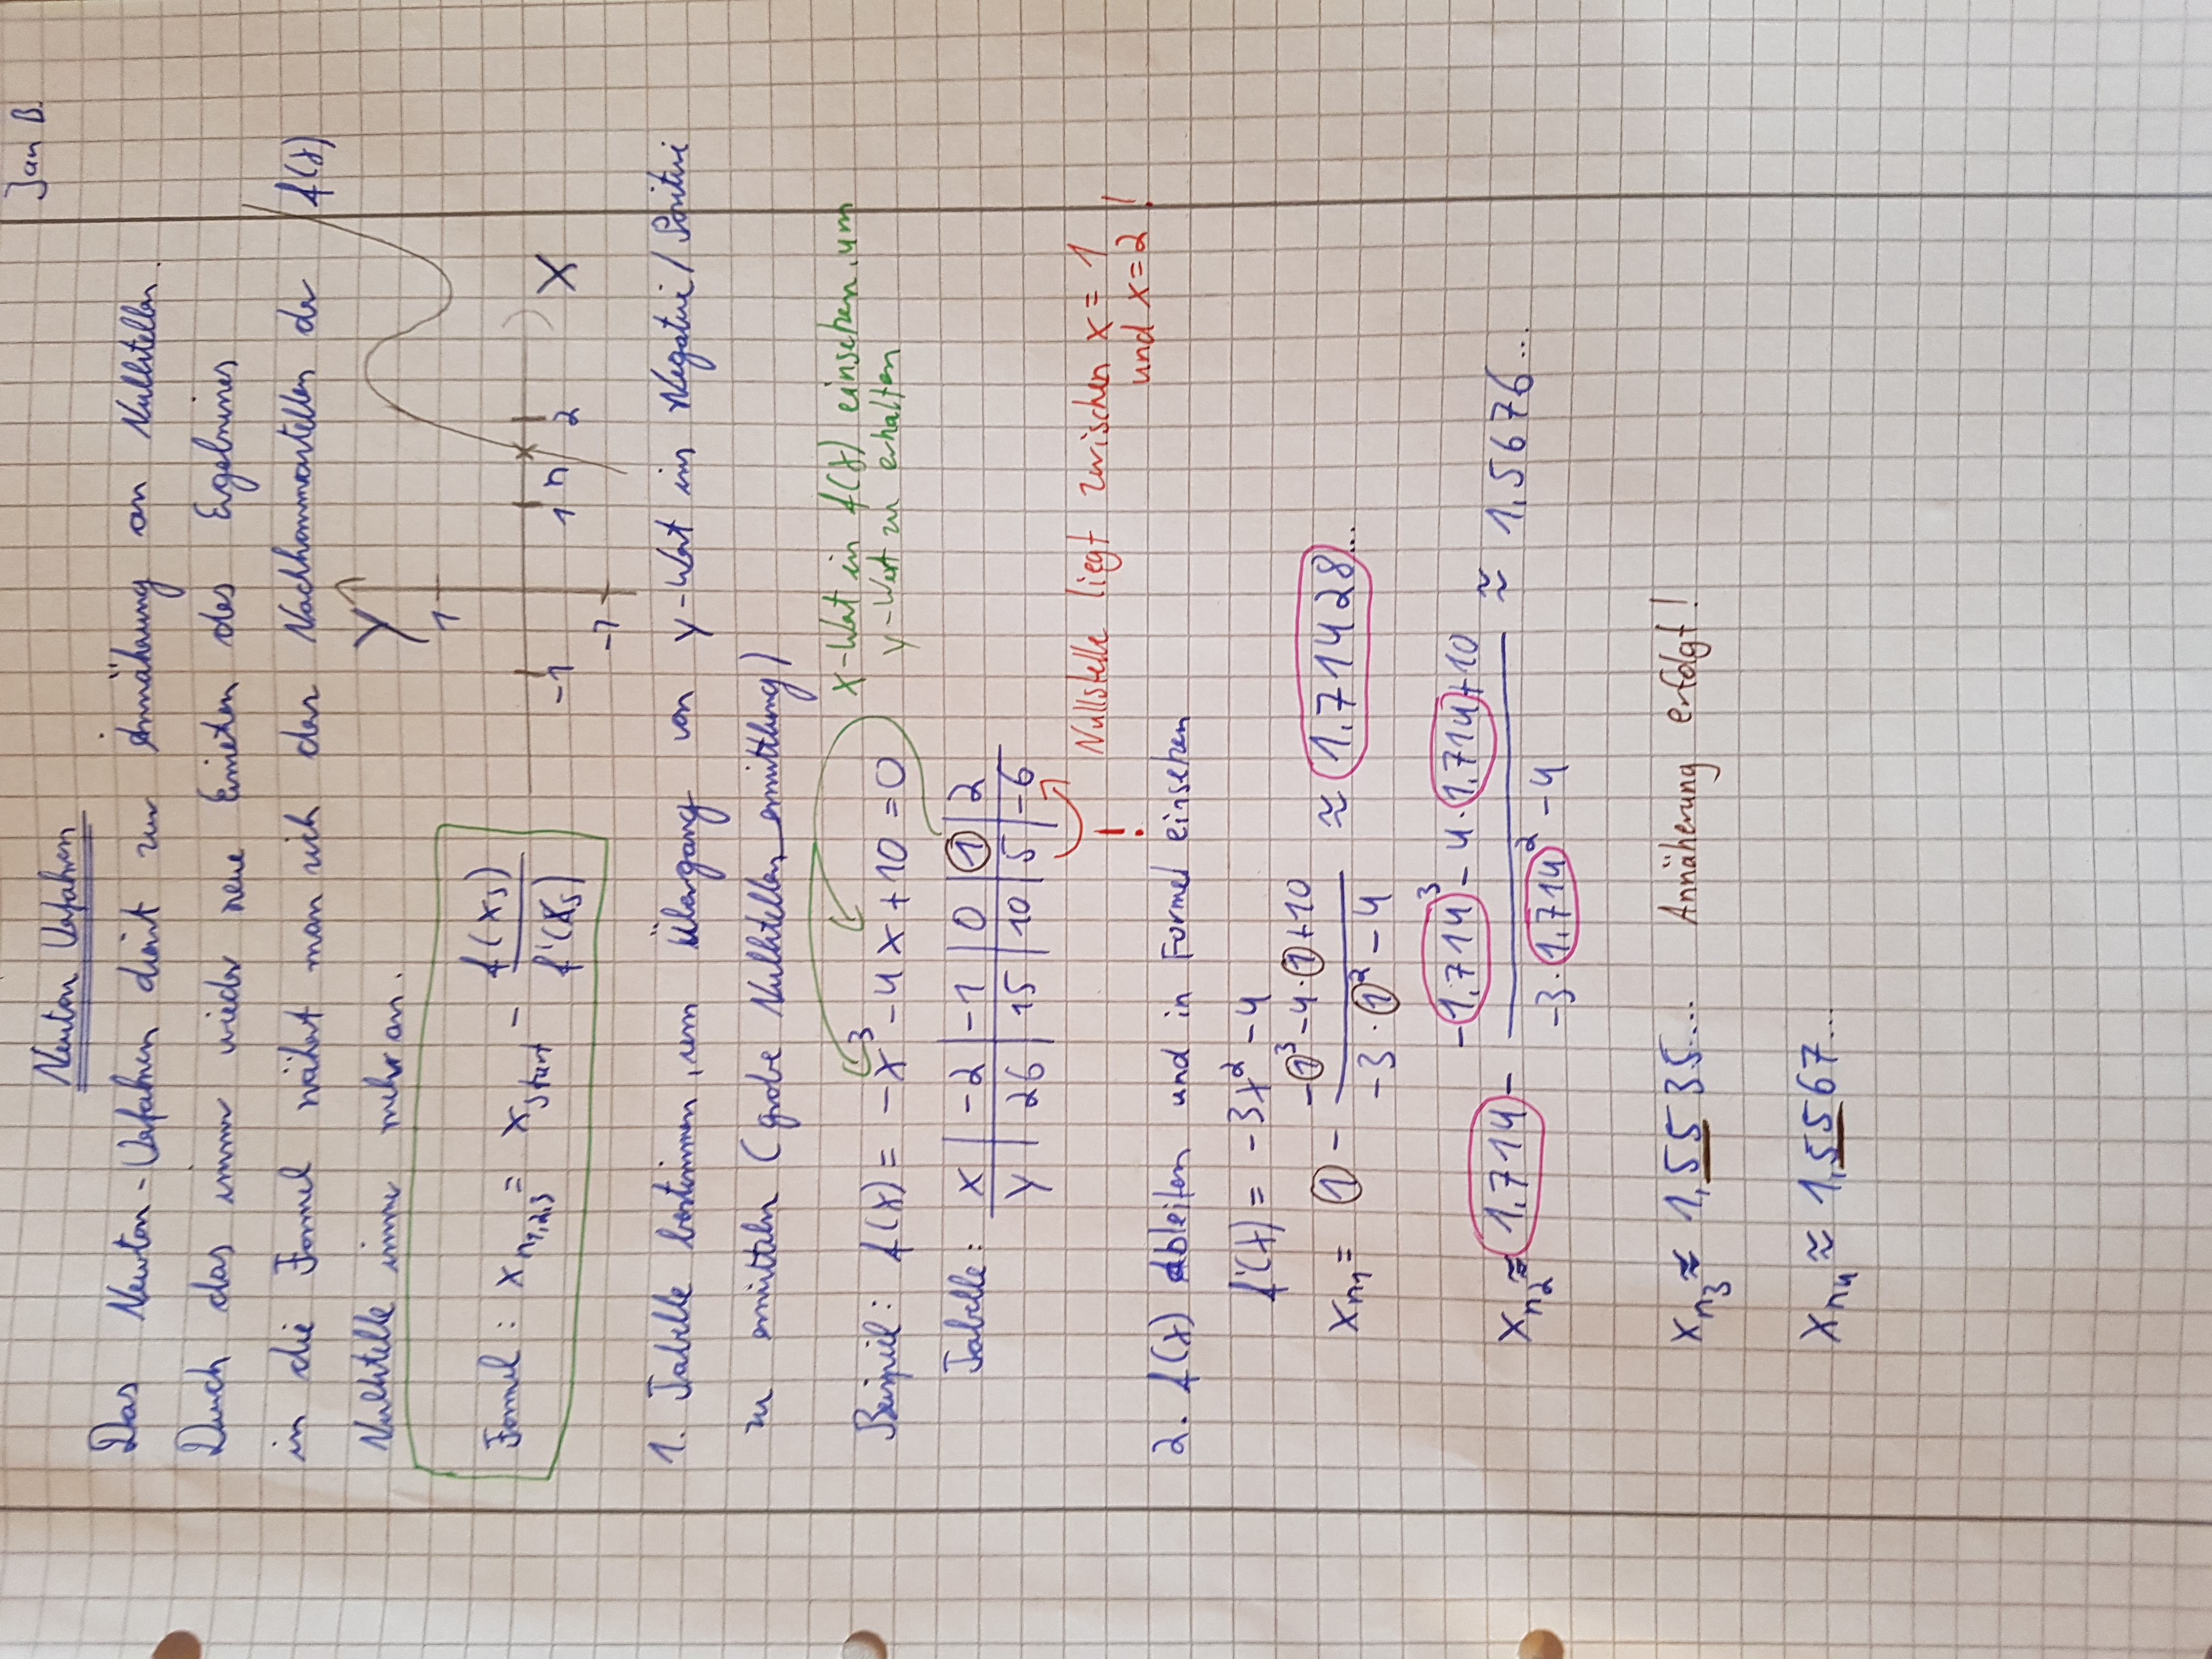 Jan B.
Newton Verfahren
Das Newton-Verfahren dient zur Annäherung an Nullstellen.
Durch das immer wieder neue Einsetzen des Ergebnisses
in die Formel nähert man sich den Nachkommastellen der
Nullstelle immer mehr an.
Formel: x_n1,2,3 = x_Start - f(x_s) / f'(x_s)
Y
1
-1
-1
1
n
2
X
f(x)
1. Tabelle bestimmen, um Übergang von y-Wert ins Negative/Positive
zu ermitteln (grobe Nullstellenermittlung)
x-Wert in f(x) einsetzen, um
y-Wert zu erhalten
Beispiel: f(x) = -x³ - 4x + 10 = 0
Tabelle: x | -2 | -1 | 0 | 1 | 2
y | 26 | 15 | 10 | 5 | -6
!
Nullstelle liegt zwischen x = 1
und x = 2 !
2. f(x) ableiten und in Formel einsetzen
f'(x) = -3x² - 4
x_n1 = 1 - (-1³ - 4·1 + 10) / (-3·1² - 4) ≈ 1,71428...
x_n2 ≈ 1,714 - (-1,714³ - 4·1,714 + 10) / (-3·1,714² - 4) ≈ 1,5676...
x_n3 ≈ 1,5535... Annäherung erfolgt!
x_n4 ≈ 1,5567...